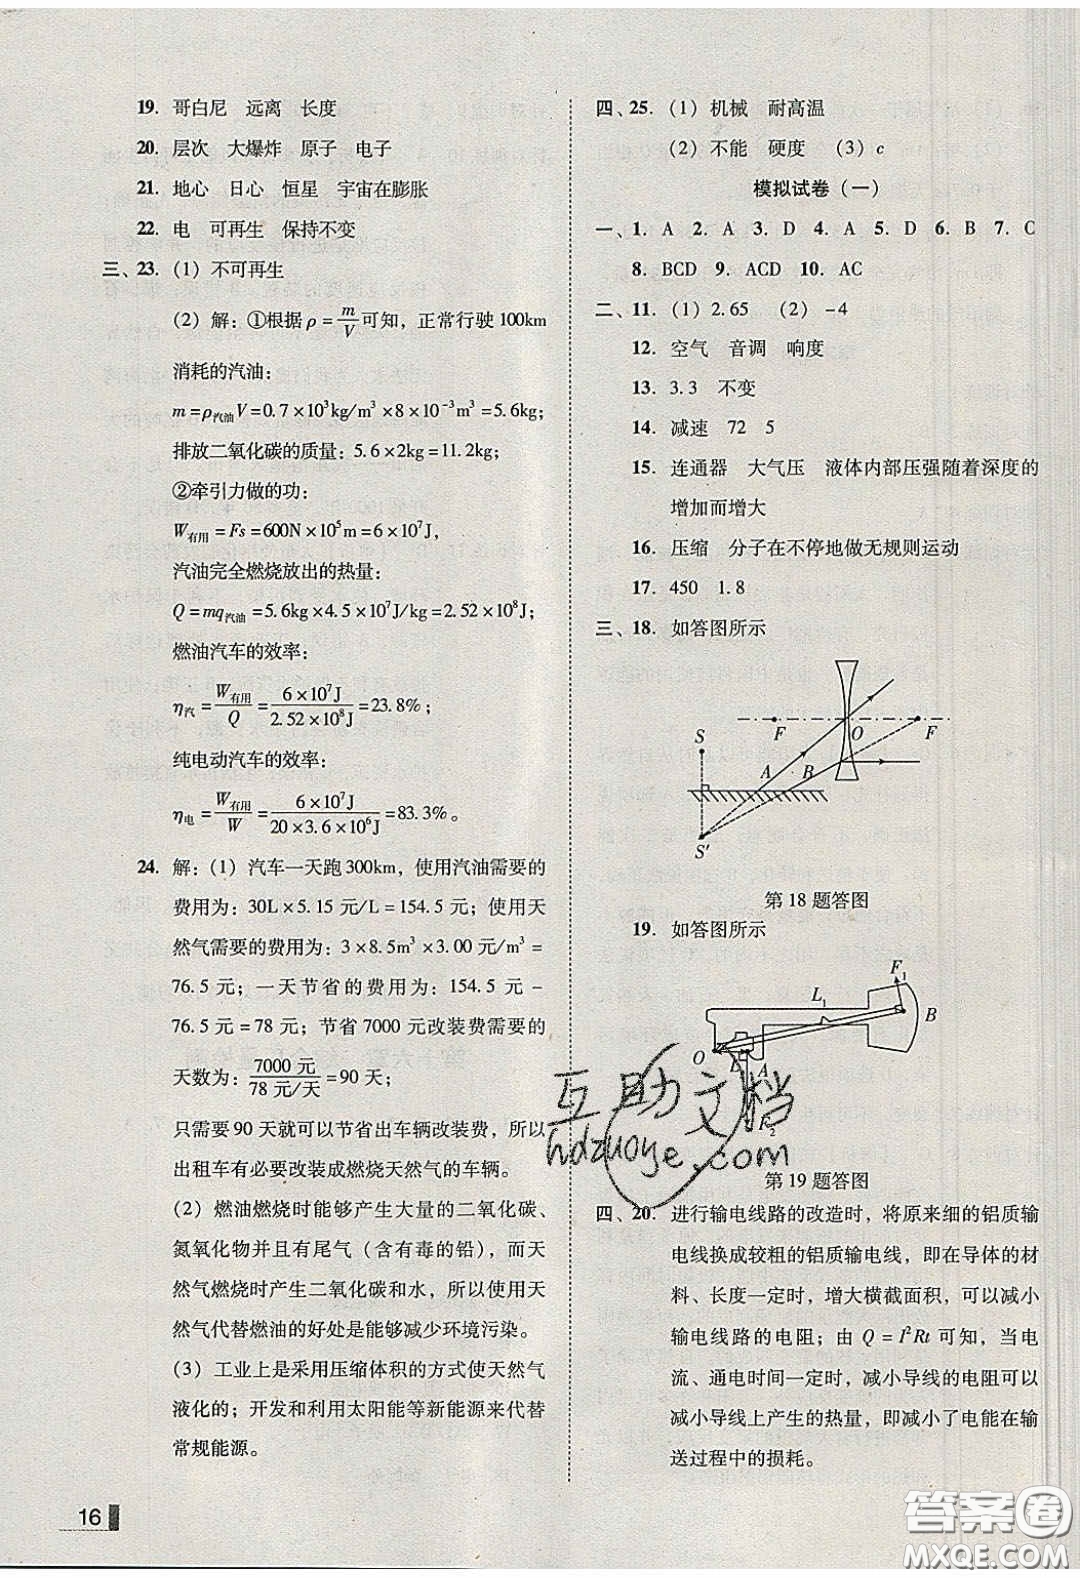 19. 哥白尼 远离 长度
20. 层次 大爆炸 原子 电子
21. 地心 日心 恒星 宇宙在膨胀
22. 电 可再生 保持不变
三、23. (1) 不可再生
(2) 解：①根据ρ=m/V可知，正常行驶100km
消耗的汽油：
m=ρ汽油V=0.7×10³kg/m³×8×10⁻³m³=5.6kg；
排放二氧化碳的质量：5.6×2kg=11.2kg；
②牵引力做的功：
W有用=Fs=600N×10⁵m=6×10⁷J，
汽油完全燃烧放出的热量：
Q=mq汽油=5.6kg×4.5×10⁷J/kg=2.52×10⁸J；
燃油汽车的效率：
η汽=W有用/Q=6×10⁷J/2.52×10⁸J=23.8%；
纯电动汽车的效率：
η电=W有用/W=6×10⁷J/20×3.6×10⁶J=83.3%。
24. 解：(1) 汽车一天跑300km，使用汽油需要的
费用为：30L×5.15元/L=154.5元；使用天
然气需要的费用为：3×8.5m³×3.00元/m³=
76.5元；一天节省的费用为：154.5元-
76.5元=78元；节省7000元改装费需要的
天数为：7000元/78元/天=90天；
只需要90天就可以节省出车辆改装费，所以
出租车有必要改装成燃烧天然气的车辆。
(2) 燃油燃烧时能够产生大量的二氧化碳、
氮氧化物并且有尾气（含有毒的铅），而天
然气燃烧时产生二氧化碳和水，所以使用天
然气代替燃油的好处是能够减少环境污染。
(3) 工业上是采用压缩体积的方式使天然气
液化的；开发和利用太阳能等新能源来代替
常规能源。
16
四、25. (1) 机械 耐高温
(2) 不能 硬度 (3) c
模拟试卷（一）
一、1. A 2. A 3. D 4. A 5. D 6. B 7. C
8. BCD 9. ACD 10. AC
二、11. (1) 2.65 (2) -4
12. 空气 音调 响度
13. 3.3 不变
14. 减速 72 5
15. 连通器 大气压 液体内部压强随着深度的
增加而增大
16. 压缩 分子在不停地做无规则运动
17. 450 1.8
三、18. 如答图所示
F O F
S A B
S′
第18题答图
19. 如答图所示
F₁
L₁ B
O L A
F₂
第19题答图
四、20. 进行输电线路的改造时，将原来细的铝质输
电线换成较粗的铝质输电线，即在导体的材
料、长度一定时，增大横截面积，可以减小
输电线路的电阻；由Q=I²Rt可知，当电
流、通电时间一定时，减小导线的电阻可以
减小导线上产生的热量，即减小了电能在输
送过程中的损耗。
互助文档
hdzuoye.com
答案圈
MXQE.COM